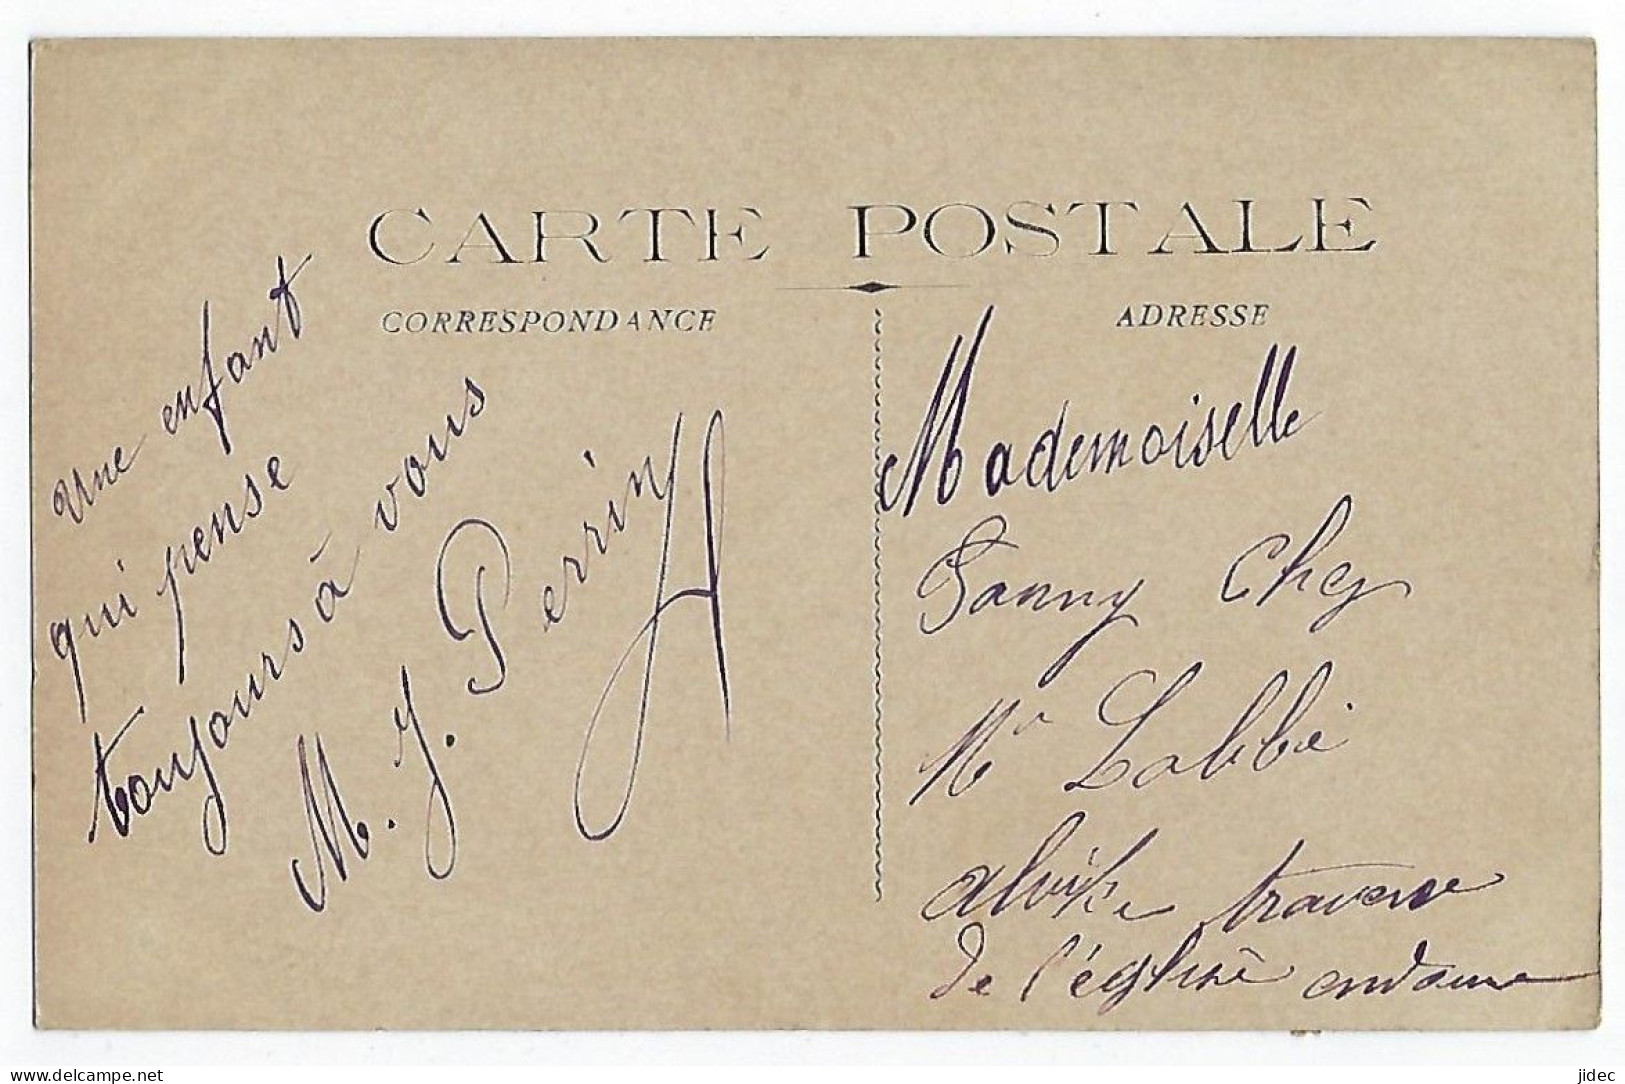 CARTE POSTALE
CORRESPONDANCE
ADRESSE
Une enfant
qui pense
toujours à vous
M. J. Perrin
Mademoiselle
Fanny Chez
Mr Labbé
traverse
de l'église
www.delcampe.net
jidec